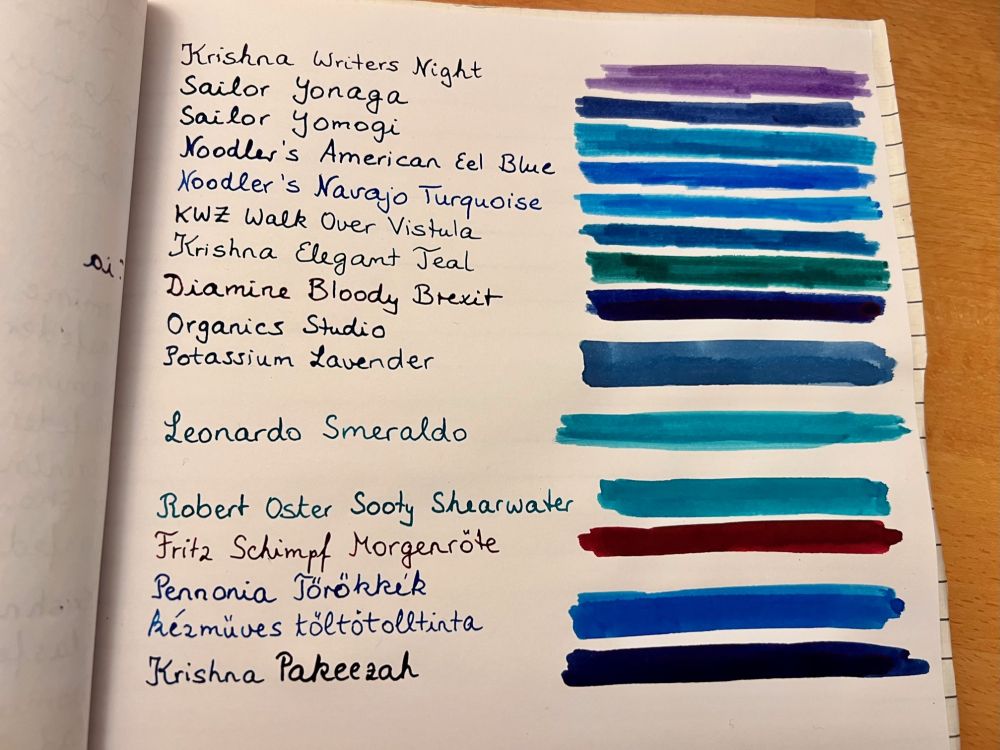 Krishna Writers Night
Sailor Yonaga
Sailor Yomogi
Noodler's American Eel Blue
Noodler's Navajo Turquoise
KWZ Walk Over Vistula
Krishna Elegant Teal
Diamine Bloody Brexit
Organics Studio
Potassium Lavender
Leonardo Smeraldo
Robert Oster Sooty Shearwater
Fritz Schimpf Morgenröte
Pennonia Törökkék
kézműves töltőtolltinta
Krishna Pakeezah